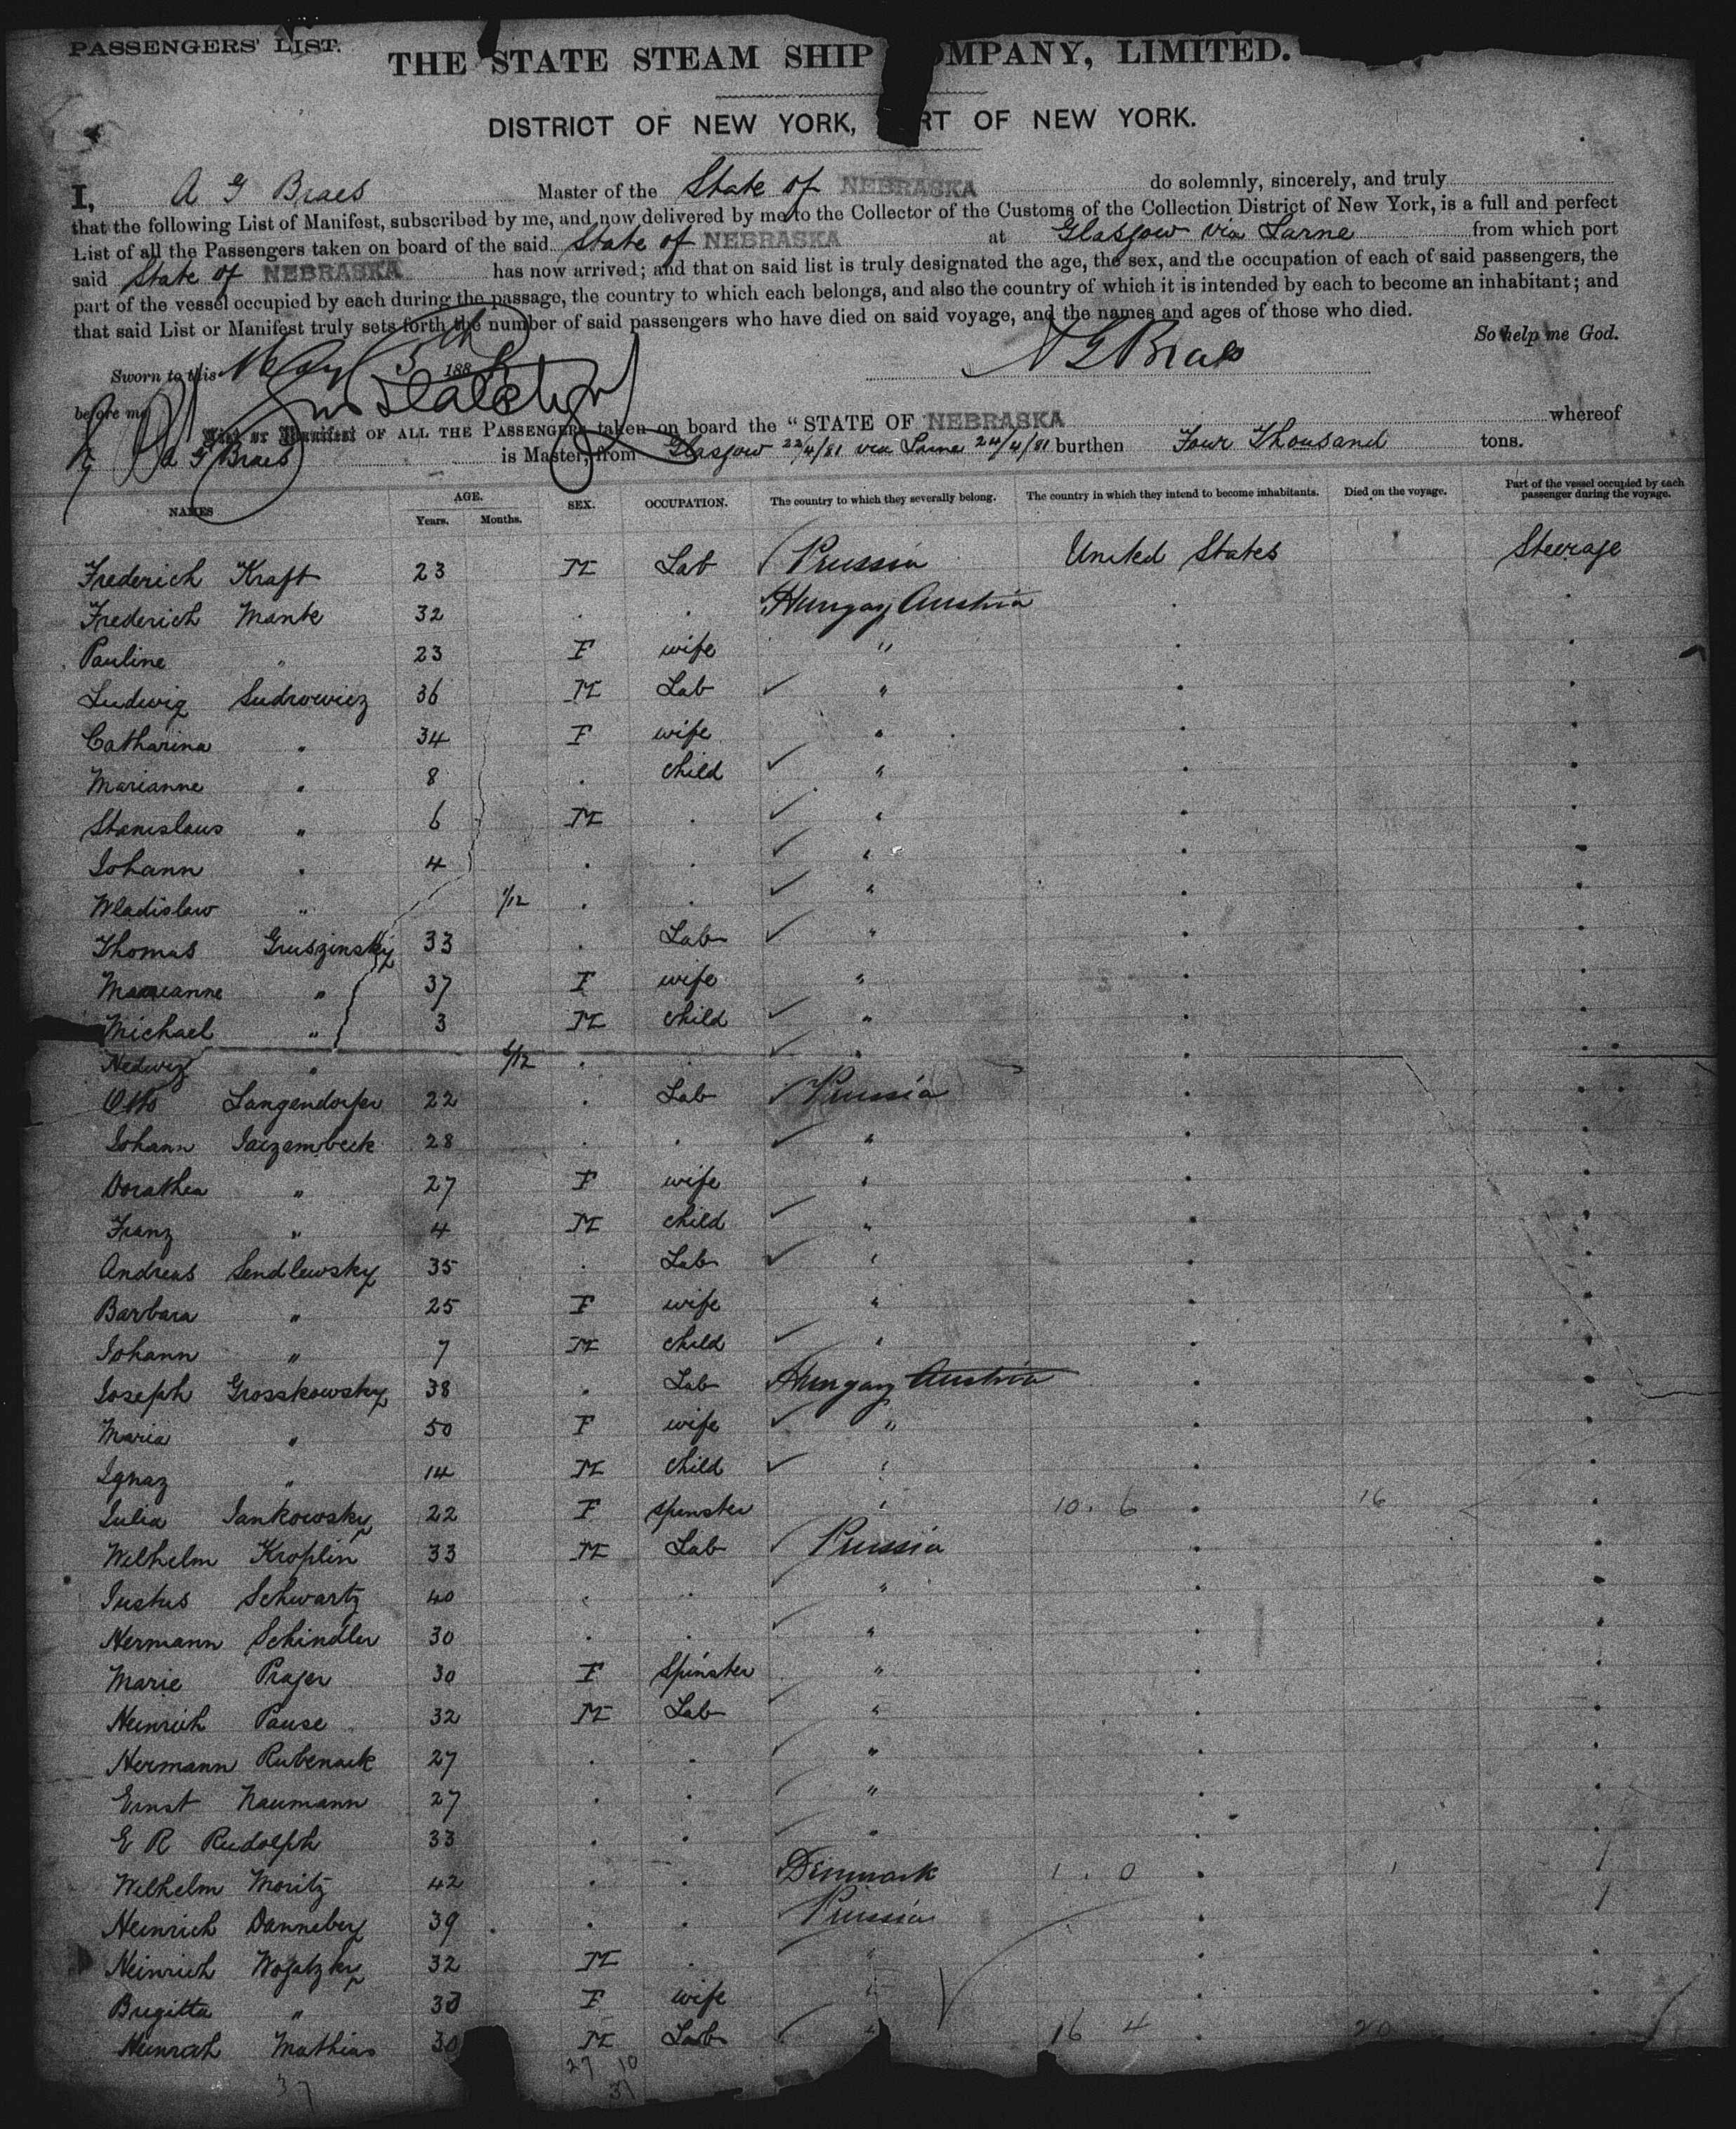 PASSENGERS' LIST.
THE STATE STEAM SHIP OMPANY, LIMITED.
DISTRICT OF NEW YORK, RT OF NEW YORK.
I, A G Braes Master of the State of NEBRASKA do solemnly, sincerely, and truly
that the following List of Manifest, subscribed by me, and now delivered by me to the Collector of the Customs of the Collection District of New York, is a full and perfect
List of all the Passengers taken on board of the said State of NEBRASKA at Glasgow via Larne from which port
said State of NEBRASKA has now arrived; and that on said list is truly designated the age, the sex, and the occupation of each of said passengers, the
part of the vessel occupied by each during the passage, the country to which each belongs, and also the country of which it is intended by each to become an inhabitant; and
that said List or Manifest truly sets forth the number of said passengers who have died on said voyage, and the names and ages of those who died.
So help me God.
Sworn to this May 5th 188 A G Braes
before me
List or Manifest OF ALL THE PASSENGERS taken on board the "STATE OF NEBRASKA whereof
A G Braes is Master, from Glasgow 22/4/81 via Larne 24/4/81 burthen Four Thousand tons.
NAMES AGE. Years. Months. SEX. OCCUPATION. The country to which they severally belong. The country in which they intend to become inhabitants. Died on the voyage. Part of the vessel occupied by each passenger during the voyage.
Frederich Kraft 23 M Lab Prussia United States Steerage
Frederich Manke 32 . . Hungay Austria . .
Pauline " 23 F wife " . .
Ludwig Sudrowicz 36 M Lab ✓ " . .
Catharina " 34 F wife " . .
Marianne " 8 . child ✓ " . .
Stanislaus " 6 M . ✓ " . .
Johann " 4 . . ✓ " . .
Wladislaw " 1/12 . . ✓ " . .
Thomas Gruszinsky 33 . Lab ✓ " . .
Marianne " 37 F wife " . .
Michael " 3 M child ✓ " . .
Hedwig " /12 . . ✓ " . .
Otto Langendorfer 22 . Lab ✓ Prussia . .
Johann Jaezambeck 28 . . ✓ " . .
Dorathea " 27 F wife " . .
Franz " 4 M child ✓ " . .
Andreas Sendlewsky 35 . Lab ✓ " . .
Barbara " 25 F wife " . .
Johann " 7 M child ✓ " . .
Joseph Grosskowsky 38 . Lab Hungay Austria . .
Maria " 50 F wife ✓ " . .
Ignaz " 14 M child ✓ " . .
Julia Jankowsky 22 F spinster " 10 . 6 . 16 .
Wilhelm Kroplin 33 M Lab ✓ Prussia . .
Justus Schwartz 40 . . ✓ " . .
Hermann Schindler 30 . . ✓ " . .
Marie Prager 30 F Spinster " . .
Heinrich Pause 32 M Lab ✓ " . .
Hermann Rubenack 27 . . ✓ " . .
Ernst Naumann 27 . . ✓ " . .
E R Rudolph 33 . . ✓ " . .
Wilhelm Moritz 42 . . Denmark 1 . 0 . 1
Heinrich Danneberg 39 . . Prussia . 1
Heinrich Wogatzky 32 M . ✓ " . .
Brigitta " 30 F wife " . .
Heinrich Mathias 30 M Lab ✓ " 16 4 . 20
37 27 10
37